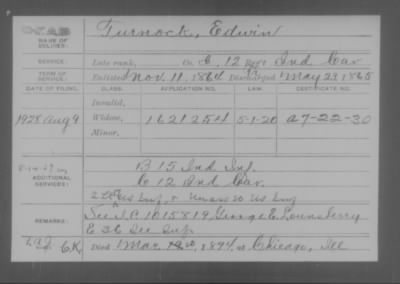 NAME OF SOLDIER: Turnock, Edwin
SERVICE: Late rank, Co. C, 12 Reg't Ind Cav
TERM OF SERVICE: Enlisted Nov. 11, 1864 Discharged May 23, 1865
DATE OF FILING. CLASS. APPLICATION NO. LAW. CERTIFICATE NO.
Invalid,
1928 Aug 9 Widow, 1621254 5-1-20 A7-22-30
Minor,
ADDITIONAL SERVICES: B 15 Ind Inf.
C 12 Ind Cav.
US Inf, & Unass US Inf
REMARKS: See I.C. 1015819, George E Lounsberry
E 36 Ill Inf
C.K. Died Mar 1894, at Chicago, Ill